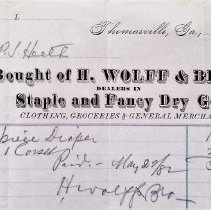 Thomasville, Ga.,
Bought of H. WOLFF & B
DEALERS IN
Staple and Fancy Dry G
CLOTHING, GROCERIES & GENERAL MERCHA
1 Corset
Paid - May 23/82
H Wolff & Bro